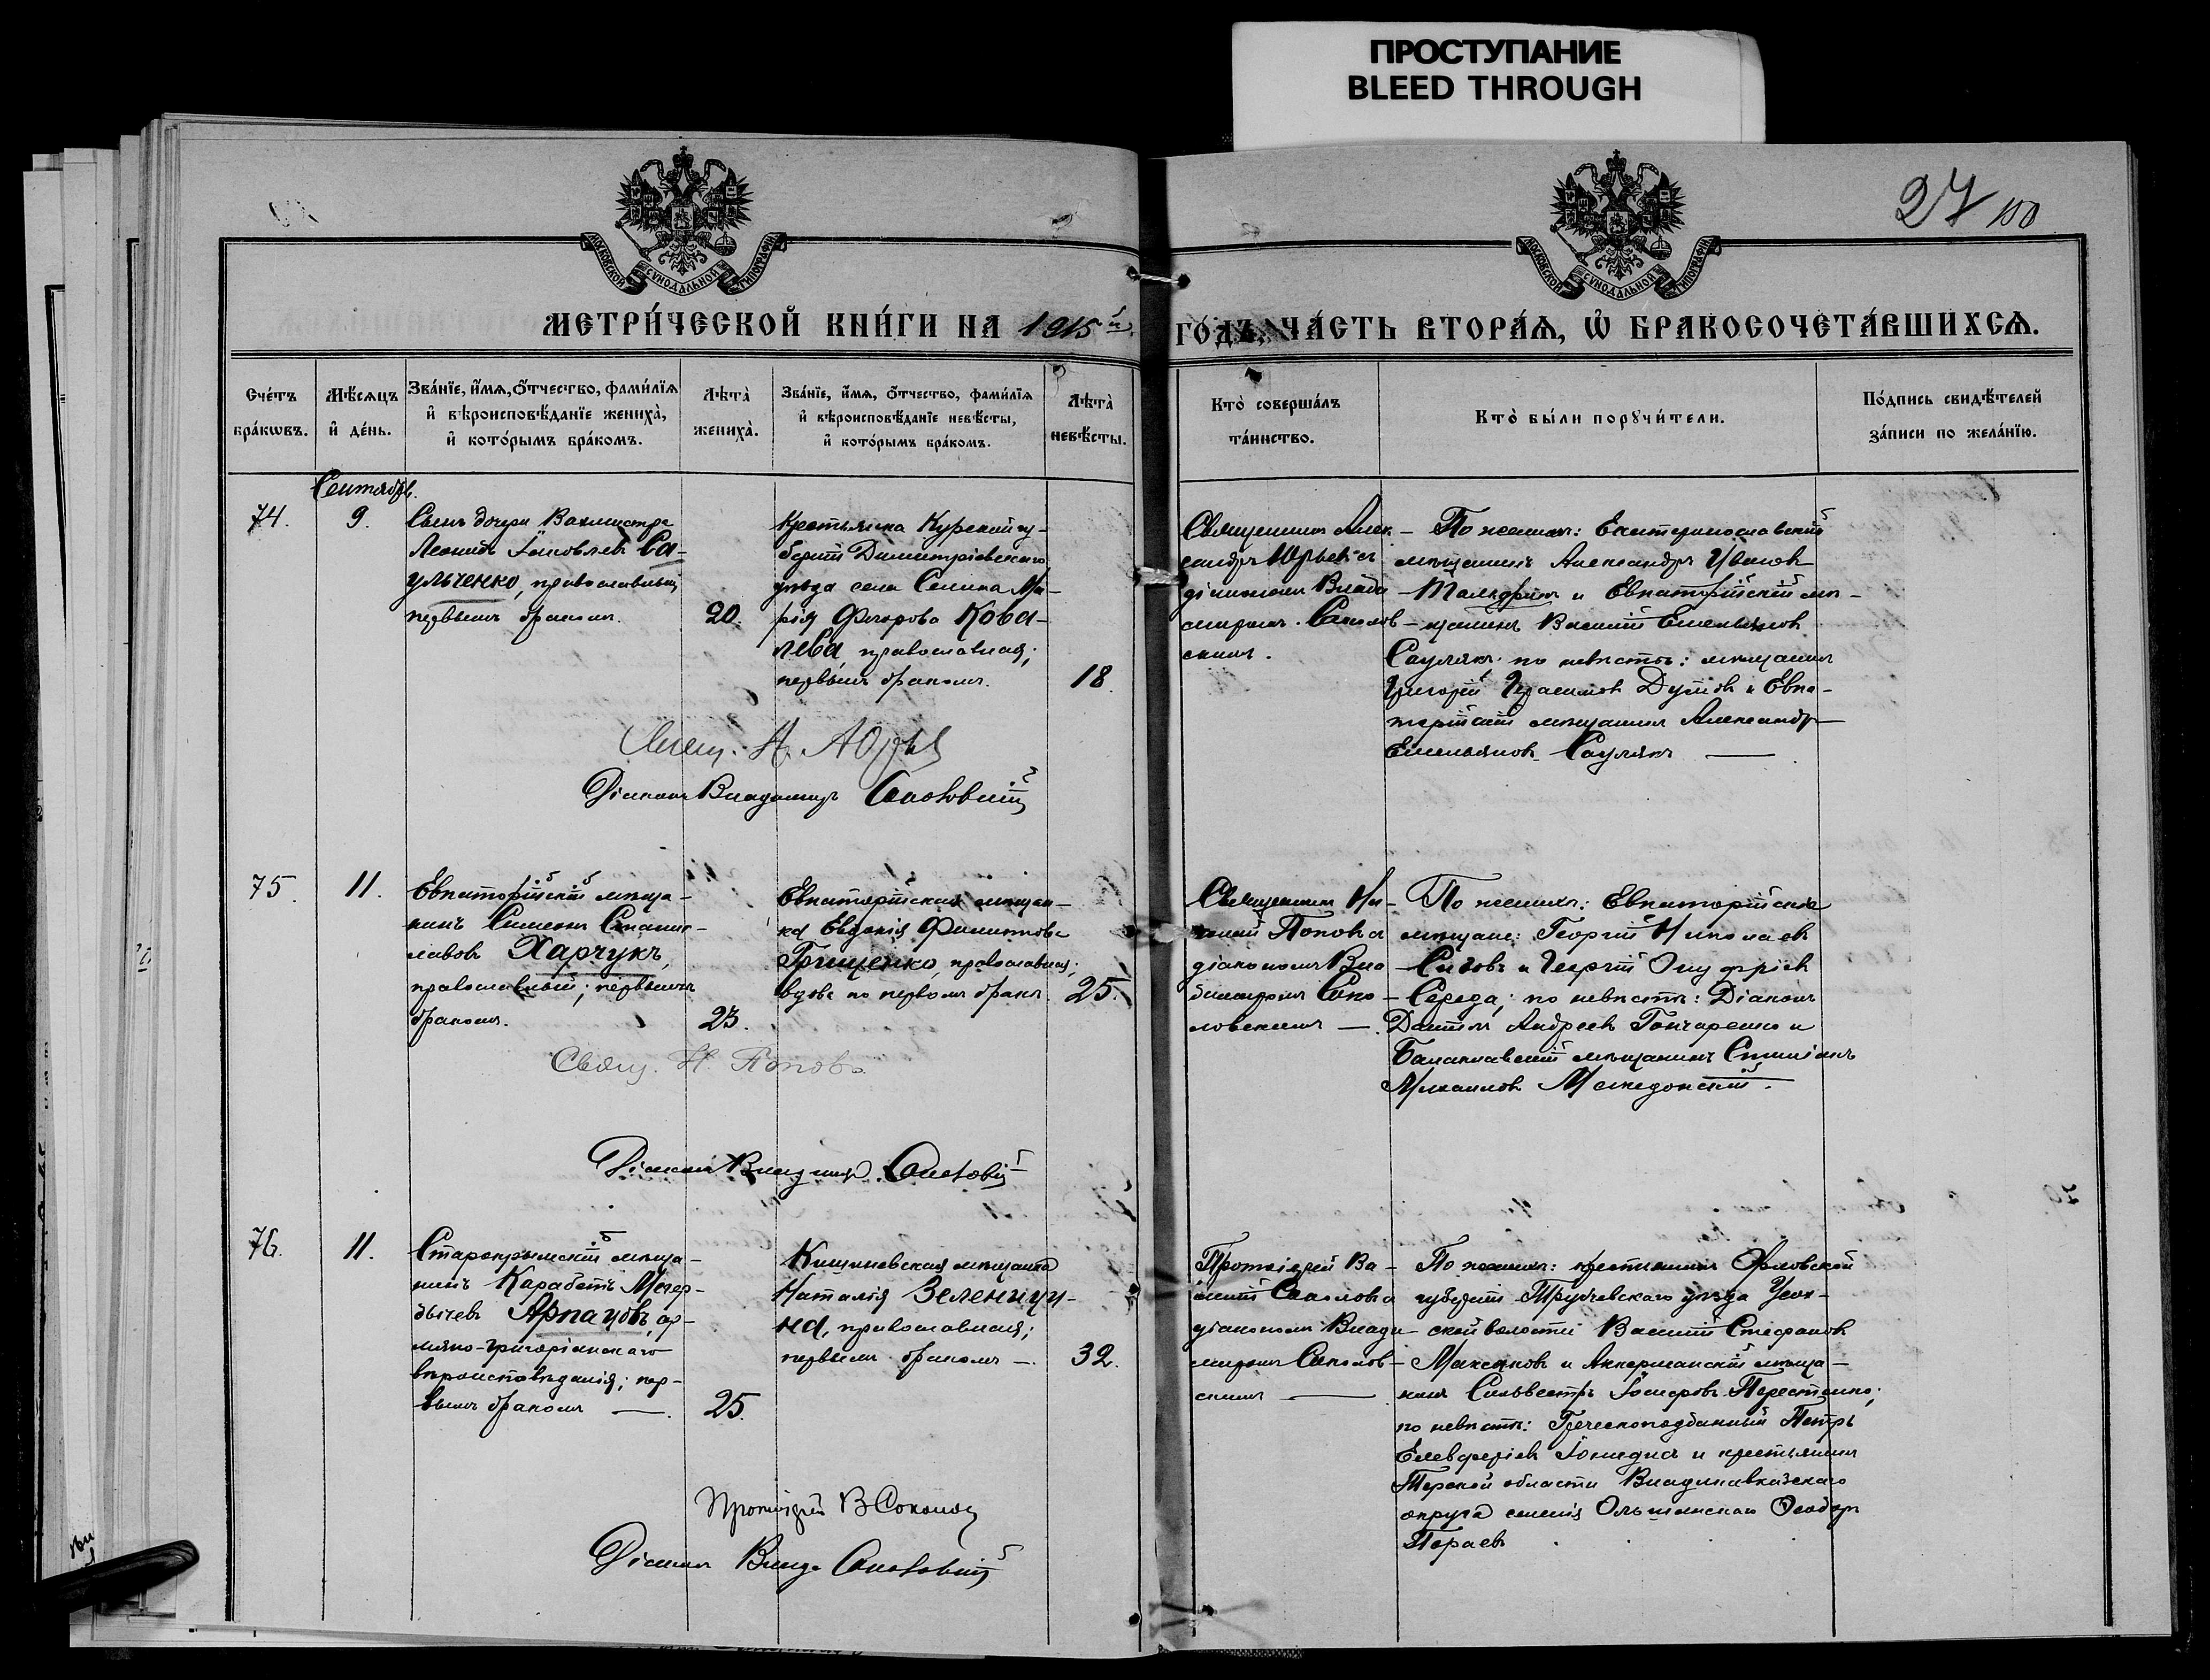 ПРОСТУПАНИЕ
BLEED THROUGH
27
МОСКОВСКОЙ СѴНОДАЛЬНОЙ ТИПОГРАФІИ
МОСКОВСКОЙ СѴНОДАЛЬНОЙ ТИПОГРАФІИ
МЕТРИ́ЧЕСКОЙ КНИ́ГИ НА 1915й ГО́ДЪ, ЧА́СТЬ ВТОРА́Я, Ѡ҆ БРАКОСОЧЕТА́ВШИХСЯ.
Сче́тъ бра́кѡвъ.
Мѣ́сяцъ и҆ де́нь.
Зва́нїе, и҆́мя, ѻ҆́тчество, фами́лїя
и҆ вѣроисповѣ́данїе жениха̀,
и҆ кото́рымъ бра́комъ.
Лѣта̀ жениха̀.
Зва́нїе, и҆́мя, ѻ҆́тчество, фами́лїя
и҆ вѣроисповѣ́данїе невѣ́сты,
и҆ кото́рымъ бра́комъ.
Лѣта̀ невѣ́сты.
Кто̀ соверша́лъ
та́инство.
Кто̀ бы́ли порꙋчи́тели.
По́дпись свидѣ́телей
за́писи по жела́нїю.
Сентябрь.
74.
9.
Сынъ дочери Вахмистра
Леонидъ Іаковлевъ Са-
ульченко, православный,
первымъ бракомъ.
20.
Крестьянка Курской гу-
берніи Димитріевскаго
уѣзда села Селина Ма-
рія Ѳедорова Кова-
лева, православная;
первымъ бракомъ.
18.
Священникъ Алек-
сандръ Юрьевъ съ
діакономъ Влади-
миромъ Соколов-
скимъ.
По женихѣ: Екатеринославскій
мѣщанинъ Александръ Ивановъ
и Евпаторійскій мѣ-
щанинъ Василій Емельяновъ
Саулякъ; по невѣстѣ: мѣщанинъ
Григорій Герасимовъ и Евпа-
торійскій мѣщанинъ Александръ
Емельяновъ Саулякъ
Свящ. А. Юрьевъ
Діаконъ Владимиръ Соколовскій
75.
11.
Евпаторійскій мѣща-
нинъ Симеонъ Станис-
лавовъ Харчукъ,
православный; первымъ
бракомъ.
23.
Евпаторійская мѣщан-
ка Евдокія Филиппова
Грищенко, православная;
вдова по первомъ бракѣ.
25.
Священникъ Ни-
колай Поповъ съ
діакономъ Вла-
димиромъ Соко-
ловскимъ
По женихѣ: Евпаторійскіе
мѣщане: Георгій Николаевъ
и Георгій Онуфріевъ
Середа; по невѣстѣ: Діаконъ
Андреевъ Гончаренко и
Балаклавскій мѣщанинъ
Михаиловъ Македонскій.
Свящ. Н. Поповъ
Діаконъ Владимиръ Соколовскій
76.
11.
Старокрымскій мѣща-
нинъ Карабетъ Мегер-
дычевъ Арпаловъ, ар-
мяно-григоріанскаго
вѣроисповѣданія; пер-
вымъ бракомъ
25.
Кишиневская мѣщанка
Наталія
православная;
первымъ бракомъ
32.
Протоіерей Ва-
силій Соколовъ съ
діакономъ Влади-
миромъ Соколов-
скимъ
По женихѣ: крестьянинъ Орловской
губерніи Трубчевскаго уѣзда
волости Василій Стефановъ
Максаковъ и Аккерманскій мѣща-
нинъ Сильвестръ Іосифовъ
по невѣстѣ: Греческоподданный Петръ
Елевферіевъ и крестьянинъ
Терской области Владикавказскаго
округа селенія Ольгинскаго Ѳеодоръ
Протоіерей В Соколовъ
Діаконъ Влад. Соколовскій